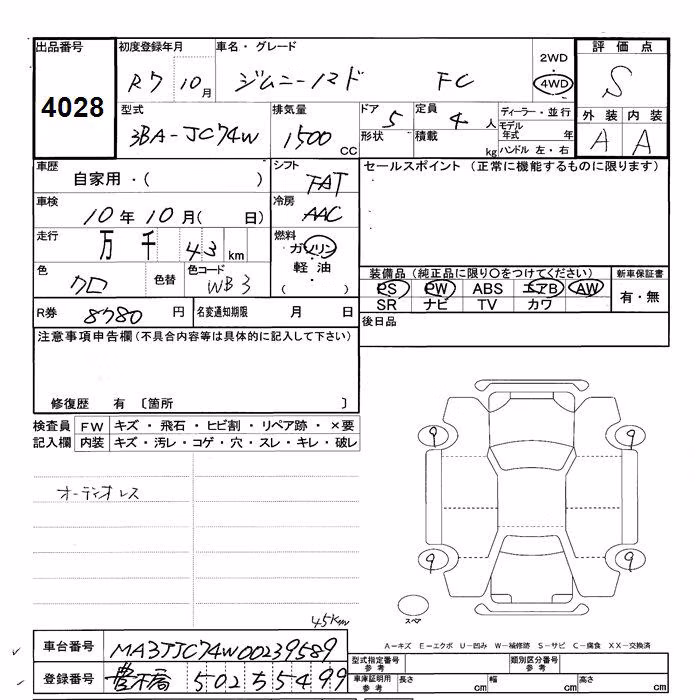 出品番号 初度登録年月 車名・グレード 2WD 評価点
4028 R7 10月 ジムニーノマド FC 4WD S
型式 排気量 ドア 定員 ディーラー・並行 外装 内装
3BA-JC74W 1500 CC 5 4 人 モデル年式 年 A A
形状 積載 kg ハンドル 左・右
車歴 シフト セールスポイント (正常に機能するものに限ります)
自家用・( ) FAT
車検 冷房
10年10月( 日) AAC
走行 燃料
万 千 43 km ガソリン・軽油 ( )
色 色替 色コード 装備品 (純正品に限り〇をつけてください) 新車保証書
クロ WB3 PS PW ABS エアB AW 有・無
SR ナビ TV カワ
R券 8780 円 名変通知期限 月 日 後日品
注意事項申告欄 (不具合内容等は具体的に記入して下さい)
修復歴 有 〔箇所 〕
検査員 FW キズ・飛石・ヒビ割・リペア跡・×要
記入欄 内装 キズ・汚レ・コゲ・穴・スレ・キレ・破レ
オーディオレス
9 9
9 9
スペア
45Km
A-キズ E-エクボ U-凹み W-補修跡 S-サビ C-腐食 XX-交換済
車台番号 MA3JJC74W00239589 型式指定番号 参考 類別区分番号 参考
登録番号 502 554 99 車庫証明用 参考 長さ cm 幅 cm 高さ cm